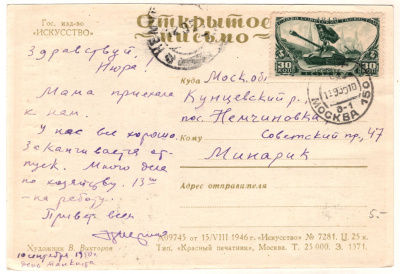 Гос. изд-во
«ИСКУССТВО»
Открытое
письмо
Здравствуй,
Нюра!
Мама приехала
к нам.
У нас все хорошо.
Заканчивается от-
пуск. Много дела
по хозяйству. 13го
- на работу.
Привет всем
10 сентября 1950г.
Художник В. Викторов
30 30
МОСКВА 150
Куда Моск. обл.
Кунцевский р.,
пос. Немчиновка
Советский пр., 47
Кому
Минарик
Адрес отправителя
5.-
А09745 от 15/VIII 1946 г. «Искусство» № 7281. Ц 25 к.
Тип. «Красный печатник», Москва. Т. 25 000. З. 1371.